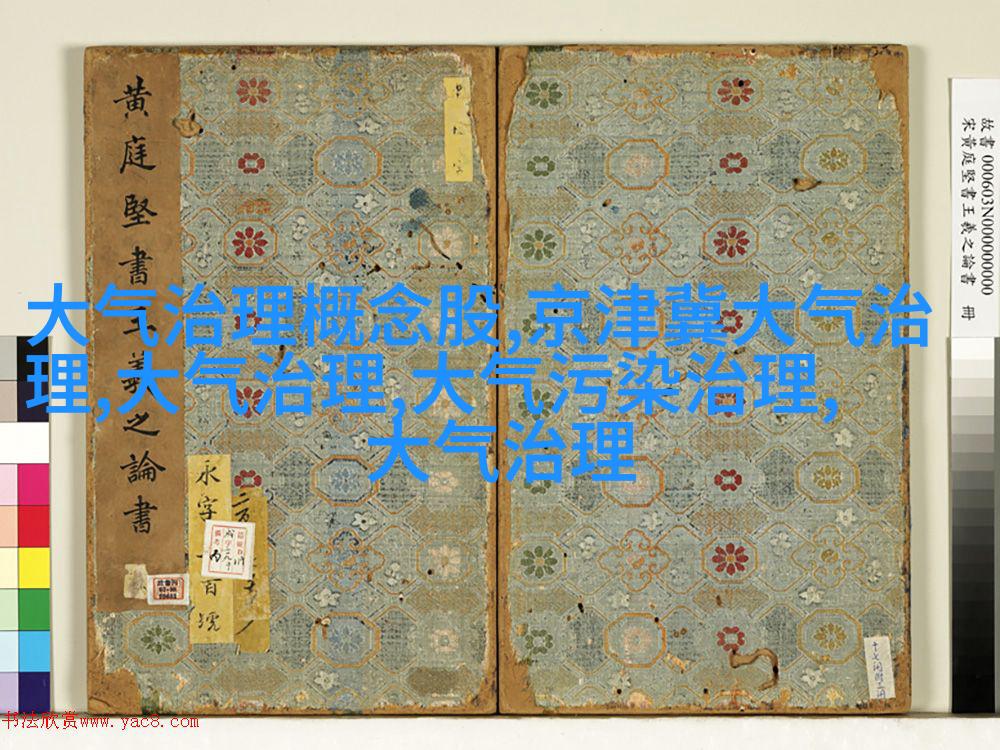 黄庭堅書王羲之論書
大气治理概念股,京津冀大气治
理,大气治理,大气污染治理,
大气治理
故書 000603N00000000
宋黄庭堅書王羲之論書 冊
永字
百號
书法欣赏www.yac8.com